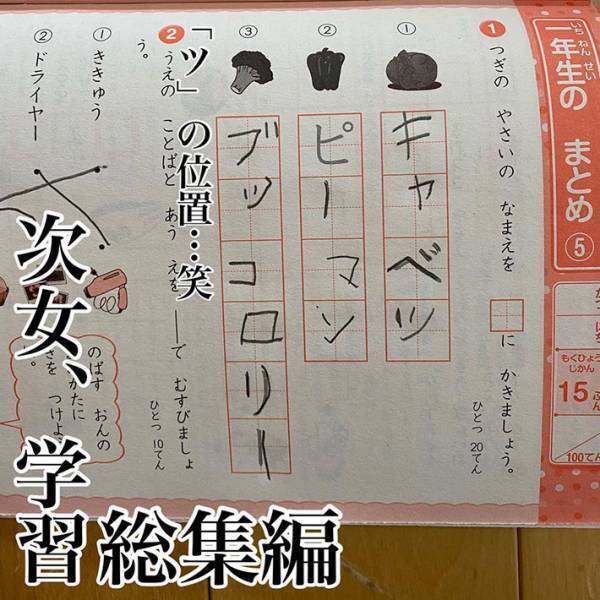 一年生の まとめ ⑤
いち ねん せい
もくひょう
じかん
15ふん
100てん
1 つぎの やさいの なまえを □に かきましょう。
ひとつ 20てん
①
キャベツ
②
ピーマン
③
ブッコロリー
「ツ」の位置…笑
2 うえの ことばと あう えを ──で むすびましょう。
ひとつ 10てん
① ききゅう
② ドライヤー
のばす おんの
次女、
学習総集編